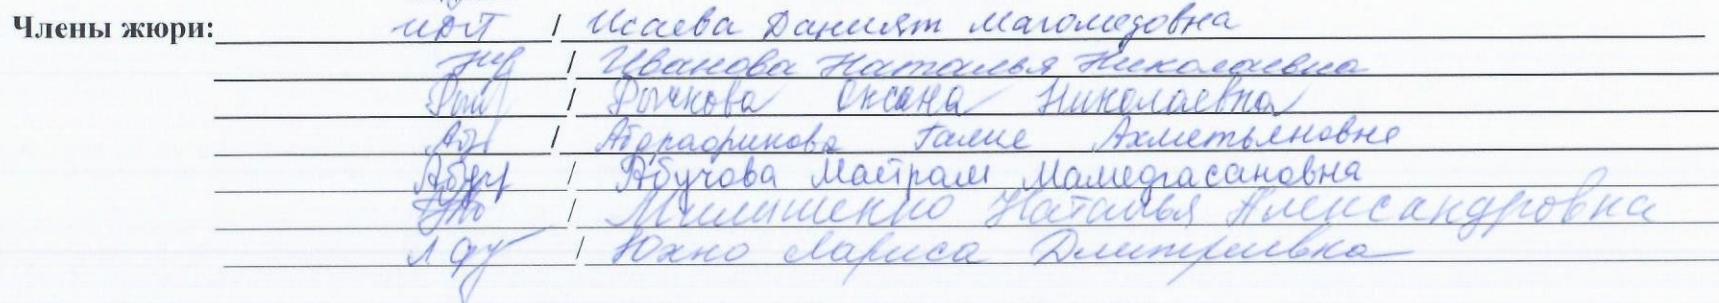 Члены жюри: / Исаева Даният Магомедовна
/ Иванова Наталья Николаевна
/ Рычкова Оксана Николаевна
/ Ахметьяновна
/ Абучова Майрам Мамедгасановна
/ Наталья Александровна
/ Юхно Лариса Дмитриевна